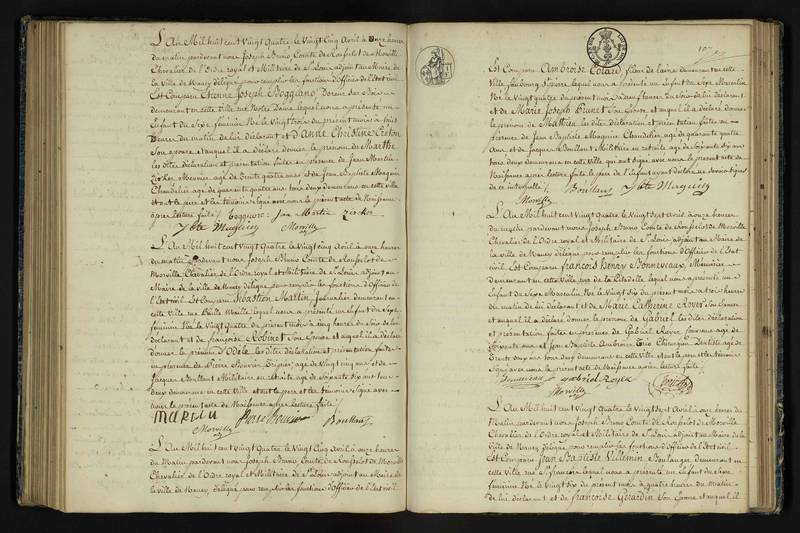 L'An Mil huit cent Vingt Quatre le Vingt Cinq Avril à Onze heures
du matin pardevant nous Joseph Bruno Comte de Rosfelot de Morville
Chevalier de l'Ordre royal et Militaire de St Louis adjoint au Maire de
la Ville de Nancy délégué pour remplir les fonctions d'Officier de l'Etat civil
Est Comparu Etienne Joseph Boggiano, Doreur sur bois
demeurant en cette ville rue Notre Dame lequel nous a présenté un
Enfant du Sexe féminin Né le Vingt trois du présent mois à huit
heures du matin de lui déclarant et d'Anne Christine Breton
Son épouse et auquel il a déclaré donner le prénom de Marthe
les dites déclaration et présentation faites en présence de Jean Martin
âgé de trente quatre ans et de Jean Baptiste Maguin
Chandelier âgé de quarante quatre ans tous deux demeurans en cette ville
et ont le père et les témoins signé avec nous le présent acte de Naissance
après lecture faite /. Boggiano Jean Martin
Jbte Maguin Morville
L'An Mil huit cent Vingt Quatre le Vingt Cinq Avril à onze heures
du matin Pardevant nous Joseph Bruno Comte de Rosfelot de
Morville Chevalier de l'Ordre royal et Militaire de St Louis adjoint au
Maire de la Ville de Nancy délégué pour remplir les fonctions d'Officier de
l'Etat civil Est Comparu Sébastien Martin, Journalier demeurant en
cette Ville rue lequel nous a présenté un Enfant du Sexe
féminin Né le Vingt Quatre du présent mois à cinq heures du Soir de lui
déclarant et de françoise Robinet Son Epouse et auquel il a déclaré
donner le prénom d'Odèle les dites déclaration et présentation faites
en présence de Pierre âgé de Vingt cinq ans et de
Jacques Boullant Militaire en retraite âgé de Soixante six ans tous
deux demeurans en cette Ville et ont le père et les témoins signé avec
nous le présent acte de Naissance après lecture faite /.
Martin
Morville Pierre Boullant
L'An Mil huit cent Vingt Quatre le Vingt Cinq Avril à onze heures
du Matin pardevant nous Joseph Bruno Comte de Rosfelot de Morville
Chevalier de l'Ordre royal et Militaire de St Louis adjoint au Maire de
la Ville de Nancy délégué pour remplir les fonctions d'Officier de l'Etat civil
107
Est Comparu Ambroise Colard fileur de laine demeurant en cette
Ville faubourg St Pierre lequel nous a présenté un Enfant du Sexe Masculin
Né le Vingt quatre du présent mois à heures du Soir de lui déclarant
et de Marie Joseph Brunet Son Epouse et auquel il a déclaré donner
le prénom de Mathieu les dites déclaration et présentation faites en
présence de Jean Baptiste Maguin Chandelier âgé de quarante quatre
Ans et de Jacques Boullant Militaire en retraite âgé de Soixante six ans
tous deux demeurans en cette Ville qui ont signé avec nous le présent acte de
Naissance après lecture faite le père de l'Enfant ayant déclaré ne savoir signer
de ce interpellé /. Boullant Jbte Maguin
Morville
L'An Mil huit cent Vingt Quatre le Vingt Sept Avril à onze heures
du matin pardevant nous Joseph Bruno Comte de Rosfelot de Morville
Chevalier de l'Ordre royal et Militaire de St Louis adjoint au Maire de
la Ville de Nancy délégué pour remplir les fonctions d'Officier de l'Etat
civil Est Comparu françois Henry Bonneveaux, Menuisier
demeurant en cette Ville rue de la Citadelle lequel nous a présenté un
Enfant du Sexe Masculin Né le Vingt Six du présent mois à trois heures
du matin de lui déclarant et de Marie Catherine Royer Son Epouse
et auquel il a déclaré donner le prénom de Gabriel les dites déclaration
et présentation faites en présence de Gabriel Royer âgé de
ans et Jean Baptiste Ambroise Chirurgien Dentiste âgé de
trente deux ans tous deux demeurans en cette Ville et ont le père et les témoins
signé avec nous le présent acte de Naissance après lecture faite /.
Bonneveau gabriel Royer
Morville
L'An Mil huit cent Vingt Quatre le Vingt Sept Avril à onze heures du
Matin pardevant nous Joseph Bruno Comte de Rosfelot de Morville
Chevalier de l'Ordre royal et Militaire de St Louis adjoint au Maire de la
Ville de Nancy délégué pour remplir les fonctions d'Officier de l'Etat civil
Est Comparu Jean Baptiste Villemin Boulanger demeurant en
cette Ville rue St François lequel nous a présenté un Enfant du Sexe
féminin Né le Vingt six du présent mois à quatre heures du Matin
de lui déclarant et de françoise Gérardin Son Epouse et auquel il